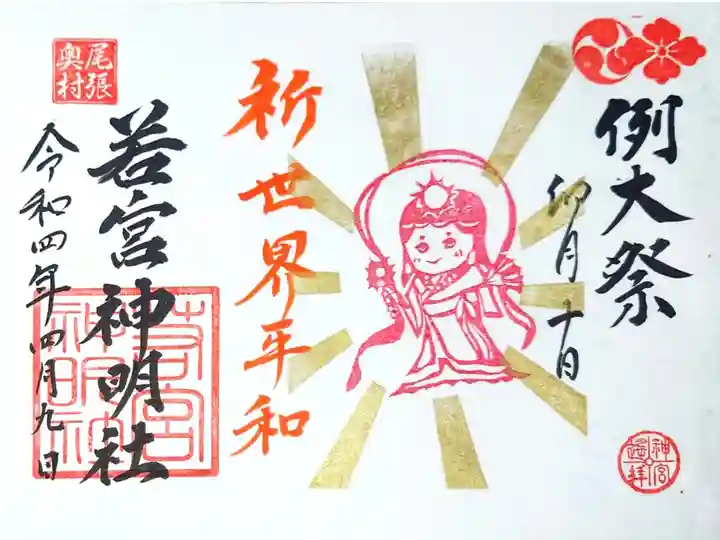 例大祭
卯月十日
神宮遥拝
祈世界平和
尾張
奥村
若宮神明社
若宮
神明社
令和四年四月九日